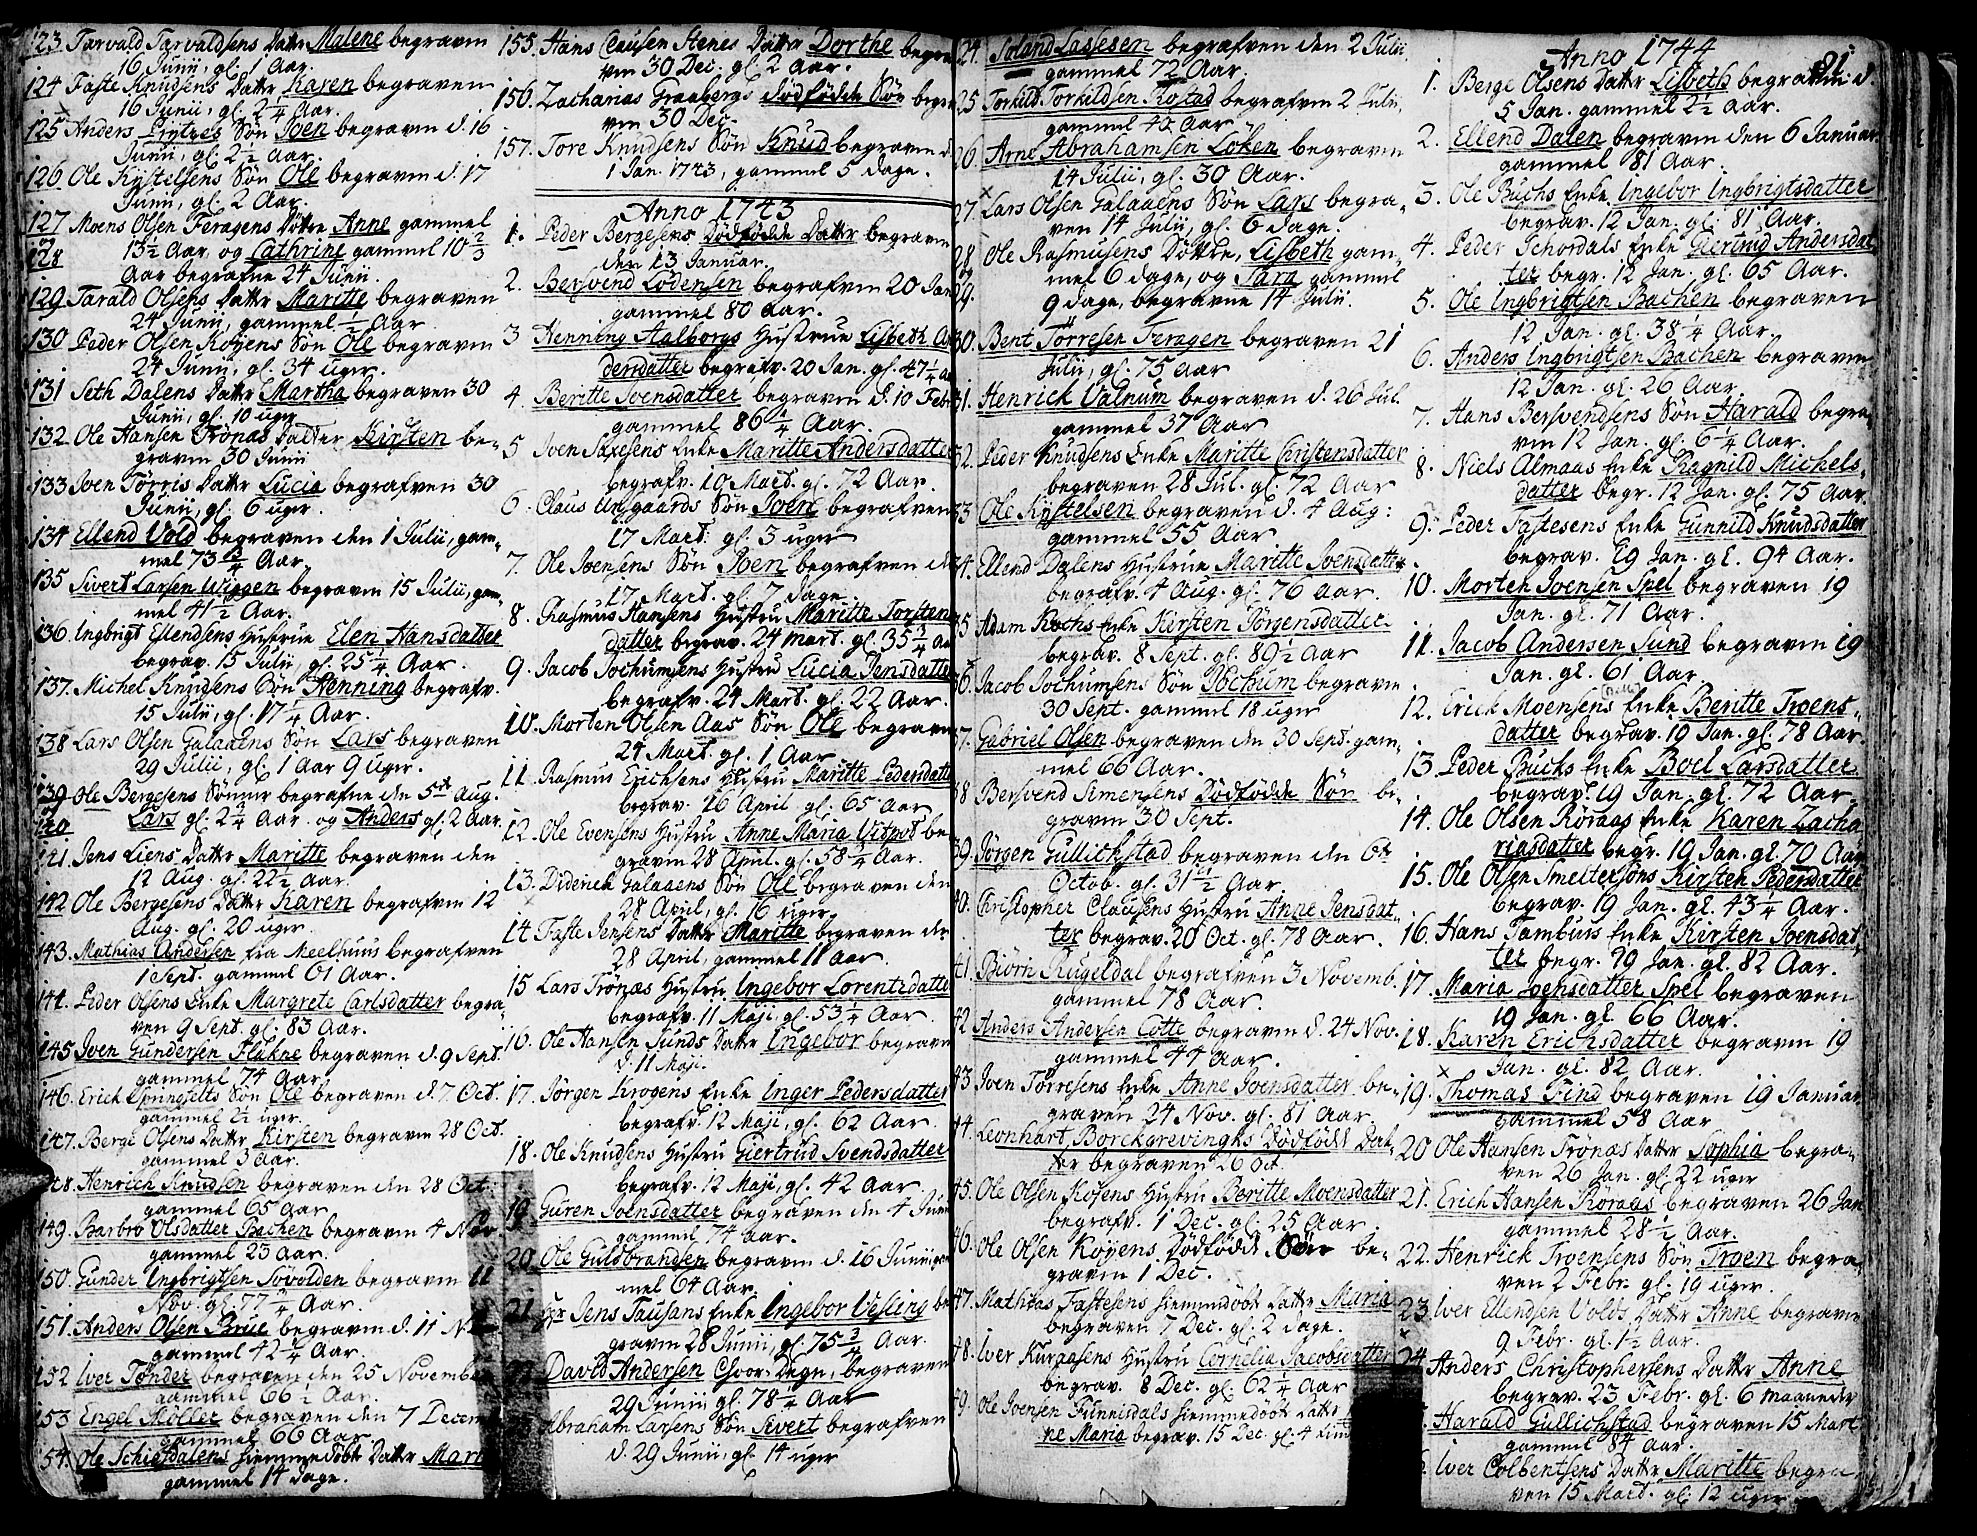 123. Tarvald Tarvaldsens Datter Malene begraven
16 Junii, gl. 1 Aar.
124 Faste Knudsens Datter Karen begraven
16 Junii, gl. 2 1/4 Aar.
125 Anders Prytzes Søn Joen begraven d. 16
Junii, gl. 2 1/2 Aar.
126. Ole Kystelsens Søn Ole begraven d. 17
Junii, gl. 2 Aar.
127 Moens Olsen Feragens Døttre Anne gammel
og 13 1/2 Aar og Cathrine gammel 10 2/3
128
Aar begrafne 24 Junii.
129. Tarald Olsens Datter Maritte begraven
24 Junii, gammel 1/2 Aar
130 Peder Olsen Koyens Søn Ole begraven
24 Junii, gl. 34 uger.
131 Seth Dalens Datter Martha begraven 30
Junii, gl. 10 uger
132. Ole Hansen Trönas Datter Kirsten be-
graven 30 Junii
133 Joen Törris Datter Lucia begrafven 30
Junii, gl. 6 uger.
134 Ellend Vold begraven den 1 Julii, gam-
mel 73 3/4 Aar.
135 Sivert Larsen Wiggen begraven 15 Julii, gam-
mel 41 1/2 Aar.
136. Ingbrigt Ellendsens Hustrue Elen Hansdatter
begrav. 15 Julii, gl. 25 1/4 Aar.
137. Michel Knudsens Søn Henning begrafv.
15 Julii, gl. 17 1/4 Aar.
138 Lars Olsen Galaaens Søn Lars begraven
29 Julii, gl. 1 Aar 9 uger.
139 Ole Bergesens Sønner begrafne den 5te Aug.
og Lars gl. 2 3/4 Aar. og Anders gl. 2 Aar.
140
141. Jens Liens Datter Maritte begraven den
12 Aug. gl. 22 1/2 Aar.
142 Ole Bergesens Datter Karen begrafven 12
Aug. gl. 20 uger.
143. Mathias Andersen fra Meelhuus begrafven
1 Sept. gammel 61 Aar.
144. Peder Olsens Enke Margrete Carlsdatter begra-
ven 9 Sept. gl. 83 Aar.
145 Joen Gundersen Flakne begraven d. 9 Sept.
gammel 74 Aar.
146. Erick Sponsfelts Søn Ole begraven d. 7. Oct.
gammel 2 1/2 uger.
147. Berge Olsens Datter Kirsten begraven 28 Oct.
gammel 3 Aar.
148. Henrich Knudsen begraven den 28 Oct.
gammel 65 Aar
149. Barbro Olsdatter Bachen begraven 4 Nov.
gammel 23 Aar.
150. Gunder Ingbrigtsen Sövolden begraven 11
Nov. gl. 77 3/4 Aar.
151. Anders Olsen Brue begraven d. 11 Nov.
gammel 42 1/4 Aar.
152 Iver Tønder begraven den 25 November
gammel 66 1/2 Aar.
153 Engel Möller begraven den 7 Decem
gammel 66 Aar.
154. Ole Schiefdalens hiemmedöbt Datter Marit
gammel 14 Dage.
155. Hans Clausen Stenes Datter Dorthe begra-
ven 30 Dec. gl. 2 Aar.
156. Zacharias Graabergs dødfødde Søn begra-
ven 30 Dec.
157. Tore Knudsens Søn Knud begraven d.
1 Jan. 1743, gammel 5 dage.
Anno 1743
1. Peder Bergesens Dødfødde Datter begraven
den 13 Januar.
2. Bersvend Lodensen begrafven 20 Jan
gammel 80 Aar.
3 Henning Aalborgs Hustrue Lisbeth An-
dersdatter begrafv. 20 Jan. gl. 47 1/4 Aar
4. Beritte Joensdatter begraven d. 10 Febr.
gammel 86 1/4 Aar.
5 Joen Saxesens Enke Maritte Andersdatter
begrafv. 10 Mart. gl. 72 Aar.
6. Claus Ursgaards Søn Joen begrafven
17 Mart. gl. 3 uger
7. Ole Joensens Søn Joen begrafven d.
17 Mart. gl. 7 dage.
8. Rasmus Hansens Hustru Maritte Torstens-
datter begrav. 24 Mart. gl. 35 1/4 Aar
9. Jacob Jochumsens Hustru Lucia Jensdatter
begrafv. 24 Mart. gl. 22 Aar.
10. Morten Olsen Aas Søn Ole begraven
24 Mart. gl. 1 Aar
11. Rasmus Erichsens Hustru Maritte Pedersdatter
begrav. 16 April gl. 65 Aar
12. Ole Evensens Hustru Anne Maria Vitrod be-
graven 28 April. gl. 58 3/4 Aar.
13. Diderick Galaaens Søn Ole begraven den
28 April, gl. 16 uger
14. Faste Jensens Datter Maritte begraven den
28 April, gammel 11 Aar.
15 Lars Trönæs Hustru Ingebor Lorentzdatter
begrafv. 11 Maji. gl. 53 1/4 Aar.
16. Ole Hansen Sunds Datter Ingebor begraven
d. 11 Maji.
17. Jørgen Krogens Enke Inger Pedersdatter
begrafv. 12 Maji, gl. 62 Aar.
18. Ole Knudsens Hustru Giertrud Svendsdatter
begrafv. 12 Maji, gl. 42 Aar
19. Guren Joensdatter begraven den 4 Junii
gammel 74 Aar.
20. Ole Guldbrandsen begraven d. 16 Junii gam-
mel 64 Aar.
21. Hr Jens Tausans Enke Ingebor Vesling be-
graven 28 Junii, gl. 75 3/4 Aar.
David Andersen Choor-Degn, begraven
29 Junii gl. 78 1/4 Aar
Abraham Larsens Søn Sivert begrafven
d. 29 Junii, gl. 14 uger
24. Joland Lassesen begrafven den 2 Julii
gammel 72 Aar.
25 Torkild Torkildsen Rostad begrafven 2 Julii,
gammel 40 Aar
26. Arne Abrahamsen Löken begraven
14 Julii, gl. 30 Aar.
27. Lars Olsen Galaaens Søn Lars begra-
ven 14 Julii, gl. 6 dage.
28 Ole Rasmusens Døttre, Lisbeth gam-
og mel 6 dage, og Sara gammel
29. 9 dage, begravne 14 Julii.
30. Bent Törresen Feragen begraven 21
Julii, gl. 75 Aar
31. Henrick Valnum begraven d. 26 Jul.
gammel 37 Aar
32. Peder Knudsens Enke Maritte Christensdatter
begraven 28 Jul. gl. 72 Aar
33 Ole Kystelsen begraven d. 4 Aug:
gammel 55 Aar.
34. Ellend Dalens Hustrue Maritte Joensdatter
begrafv. 4 Aug. gl. 76 Aar.
35 Adam Kochs Enke Kirsten Jörgensdatter
begrav. 8 Sept. gl. 89 1/2 Aar
36. Jacob Jochumsens Søn Jochum begraven
30 Sept. gammel 18 uger
37. Gabriel Olsen begraven den 30 Sept. gam-
mel 66 Aar.
38 Bersvend Simensens Dødfødde Søn be-
graven 30 Sept.
39. Jørgen Gullichstad begraven den 6te
Octob. gl. 31 1/2 Aar.
40. Christopher Clausens Hustru Anne Jensdat-
ter begrav. 20 Oct. gl. 78 Aar.
41. Biörn Rugeldal begrafven 3 Novemb.
gammel 78 Aar.
42 Anders Andersen Cotte begraven d. 24 Nov.
gammel 44 Aar.
43. Joen Törresens Enke Anne Joensdatter be-
graven 24 Nov. gl. 81 Aar.
44. Leonhart Borckgrevingks Dödfödt Dat-
ter begraven 26 Oct.
45. Ole Olsen Kosens Hustru Beritte Moensdatter
begrafv. 1 Dec. gl. 25 Aar.
46. Ole Olsen Koyens Dödfödt Søn be-
graven 1 Dec.
47. Mathias Fastesens hiemmedöbt Datter Maria
begraven 7 Dec. gl. 2 dage.
48. Iver Kuraasens Hustru Cornelia Jacobsdatter
begrav. 8 Dec. gl. 62 1/4 Aar
49. Ole Joensen Funnesdals hiemmedöbt Datter
ne Maria begrav. 15 Dec. gl. 4
81.
Anno 1744
1. Berge Olsens Datter Lisbeth begraven d.
5 Jan. gammel 2 1/2 Aar.
2. Ellend Dalen begraven den 6 Januar
gammel 81 Aar.
3. Ole Buchs Enke Ingebor Ingbrigtsdatter
begrav. 12 Jan. gl. 81 Aar.
4. Peder Schordals Enke Giertrud Andersdat-
ter begr. 12 Jan. gl. 65 Aar.
5. Ole Ingbrigtsen Bachen begraven
12 Jan. gl. 38 1/4 Aar.
6. Anders Ingbrigtsen Bachen begraven
12 Jan. gl. 26 Aar.
7. Hans Bersvendsens Søn Harald begra-
ven 12 Jan. gl. 6 1/4 Aar.
8. Niels Almaas Enke Ragnild Michels-
datter begr. 12 Jan. gl. 75 Aar.
9. Peder Fastesens Enke Gunnild Knudsdatter
begrav. 19 Jan. gl. 94 Aar.
10. Morten Joensen Spel begraven 19
Jan. gl. 71 Aar.
11. Jacob Andersen Sund begraven 19
Jan. gl. 61 Aar.
12. Erick Moensens Enke Beritte Troens-
datter begrav. 19 Jan. gl. 78 Aar.
13. Peder Buchs Enke Boel Larsdatter
begrav. 19 Jan. gl. 72 Aar.
14. Ole Olsen Röraas Enke Karen Zacha
riasdatter begr. 19 Jan. gl. 70 Aar
15. Ole Olsen Smeltersons Kirsten Pedersdatter
begrav. 19 Jan. gl. 43 1/4 Aar.
16. Hans Tamburs Enke Kirsten Joensdat-
ter begr. 19 Jan. gl. 82 Aar.
17. Maria Joensdatter Spel begraven
19 Jan. gl. 66 Aar.
18. Karen Erichsdatter begraven 19
Jan. gl. 82 Aar.
19. Thomas Find begraven 19 Januar
gammel 58 Aar
20 Ole Hansen Trönæs Datter Sophia begra-
ven 26 Jan. gl. 22 uger
21. Erich Hansen Röraas begraven 26 Jan
gammel 28 1/2 Aar.
22. Henrick Troensens Søn Troen begra-
ven 2 Febr. gl. 19 uger.
23. Iver Ellendsen Volds Datter Anne begraven
9 Febr. gl. 1 1/2 Aar.
24. Anders Christophersens Datter Anne
begrav. 23 Febr. gl. 6 maaneder
Harald Gullichstad begraven 15 Mart
gammel 84 Aar.
Iver Colbentsens Datter Maritte begra-
ven 15 Mart. gl. 12 uger